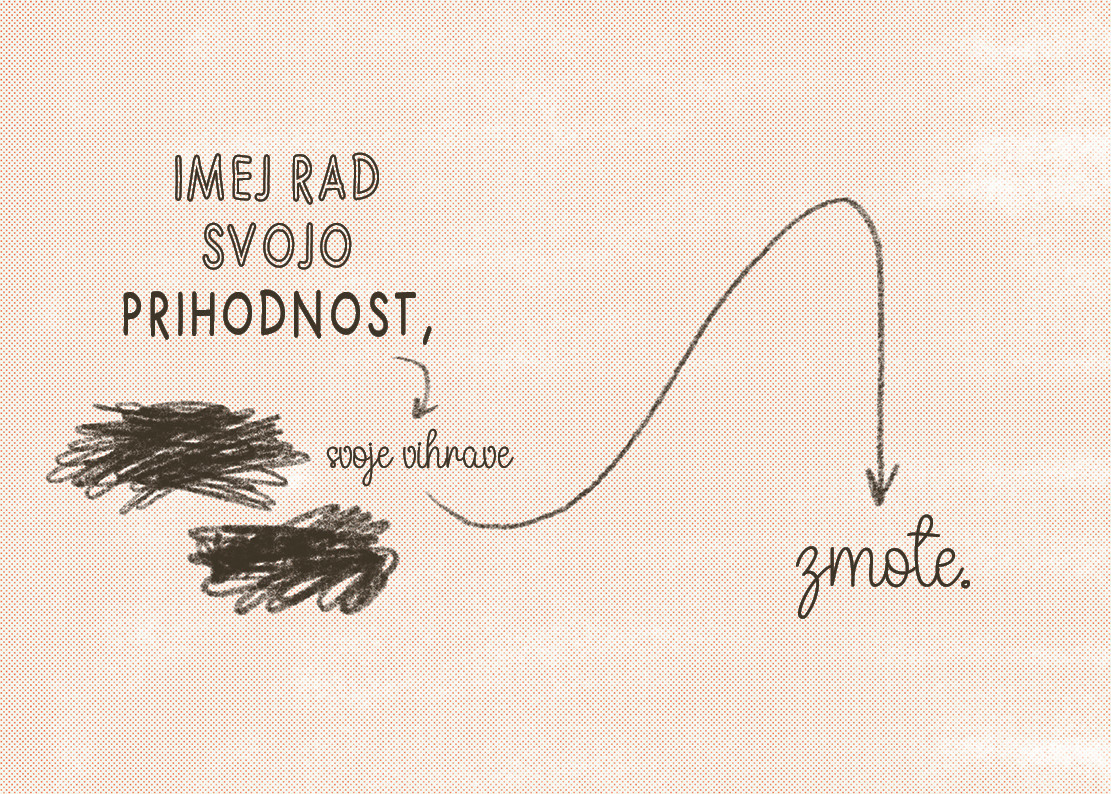 IMEJ RAD
SVOJO
PRIHODNOST,
svoje vihrave
zmote.